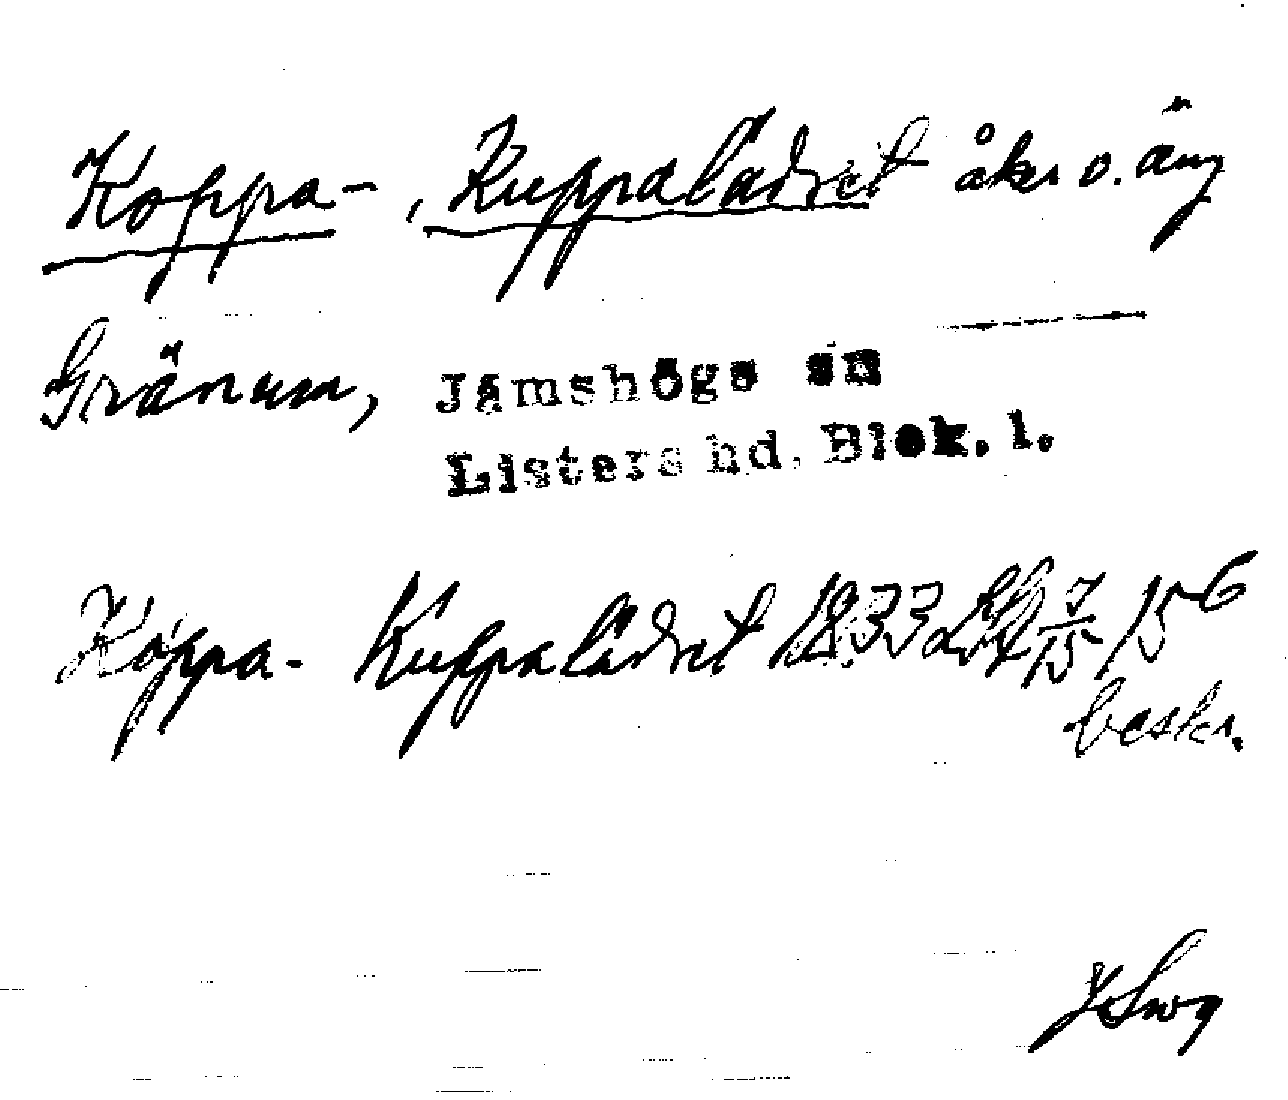 Koppa-, Kuppaladret åker o. äng
Gränum, Jämshögs sn
Listers hd. Blek. l.
Koppa- Kuppaladret 1833 7/15 156
beskr.